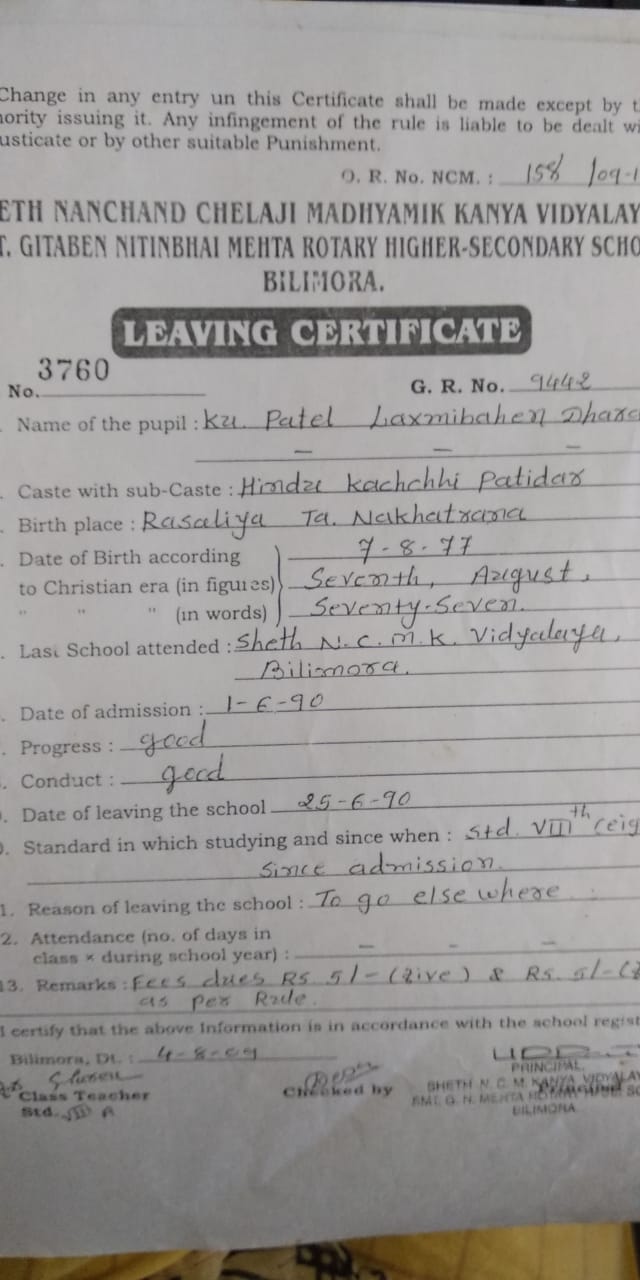 Change in any entry un this Certificate shall be made except by t
nority issuing it. Any infingement of the rule is liable to be dealt wi
usticate or by other suitable Punishment.
O. R. No. NCM. : 158 /09-1
ETH NANCHAND CHELAJI MADHYAMIK KANYA VIDYALAY
T. GITABEN NITINBHAI MEHTA ROTARY HIGHER-SECONDARY SCHO
BILIMORA.
LEAVING CERTIFICATE
No. 3760 G. R. No. 9442
Name of the pupil : Ku. Patel Laxmibahen Dhara
— — —
Caste with sub-Caste : Hindu Kachchhi Patidar
Birth place : Rasaliya Ta. Nakhatrana
Date of Birth according 7-8-77
to Christian era (in figures) Seventh, August,
" " " (in words) Seventy-Seven.
Last School attended : Sheth N.C.M.K. Vidyalaya,
Bilimora.
Date of admission : 1-6-90
Progress : good
Conduct : good
Date of leaving the school 25-6-90
Standard in which studying and since when : Std. VIIIth (eig
since admission.
1. Reason of leaving the school : To go elsewhere
2. Attendance (no. of days in
class × during school year) : — — —
13. Remarks : Fees dues Rs 5/- (five) & Rs. 5/-
as per Rule.
I certify that the above Information is in accordance with the school regist
Bilimora, Dt. : 4-8-09
PRINCIPAL,
Class Teacher Checked by SHETH N. C. M. KANYA VIDYALAY
Std. VIII A SMT. G. N. MEHTA
BILIMORA